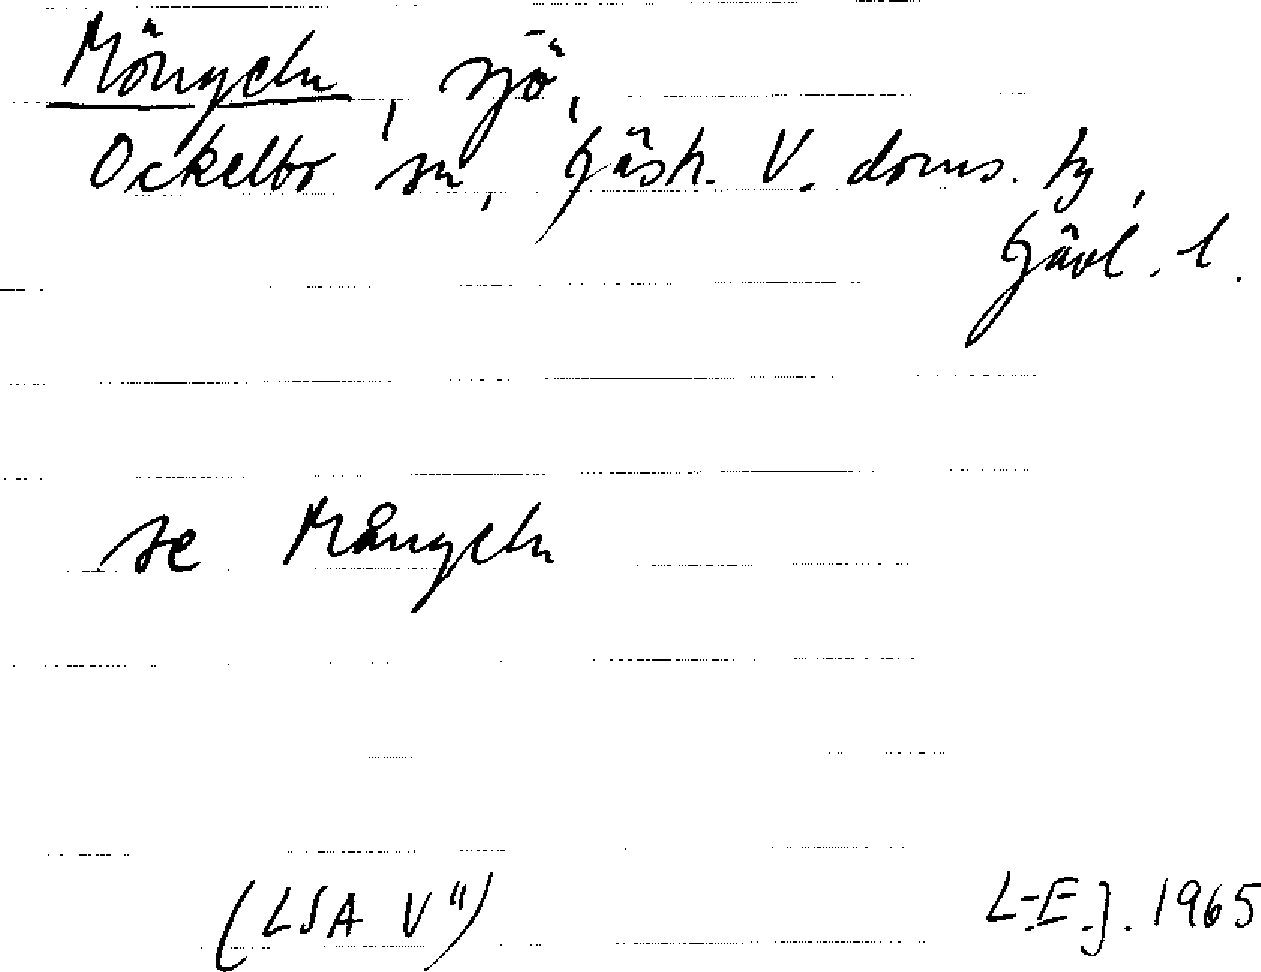 Möngeln, sjö,
Ockelbo sn, Gästr. V. doms. hg,
Gävl. l.
se Mångeln
(LSA V")
L-E J. 1965